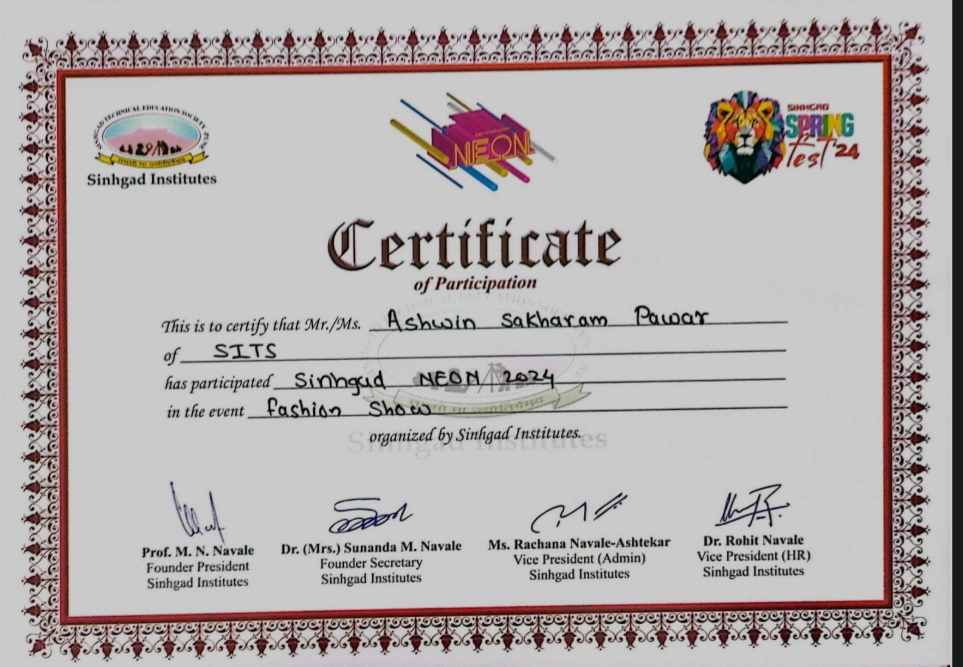 SINHGAD TECHNICAL EDUCATION SOCIETY
Sinhgad Institutes
NEON
SINHGAD
SPRING
fest '24
Certificate
of Participation
This is to certify that Mr./Ms. Ashwin Sakharam Pawar
of SITS
has participated Sinhgad NEON 2024
in the event fashion Show
organized by Sinhgad Institutes.
Sinhgad Institutes
Prof. M. N. Navale
Founder President
Sinhgad Institutes
Dr. (Mrs.) Sunanda M. Navale
Founder Secretary
Sinhgad Institutes
Ms. Rachana Navale-Ashtekar
Vice President (Admin)
Sinhgad Institutes
Dr. Rohit Navale
Vice President (HR)
Sinhgad Institutes